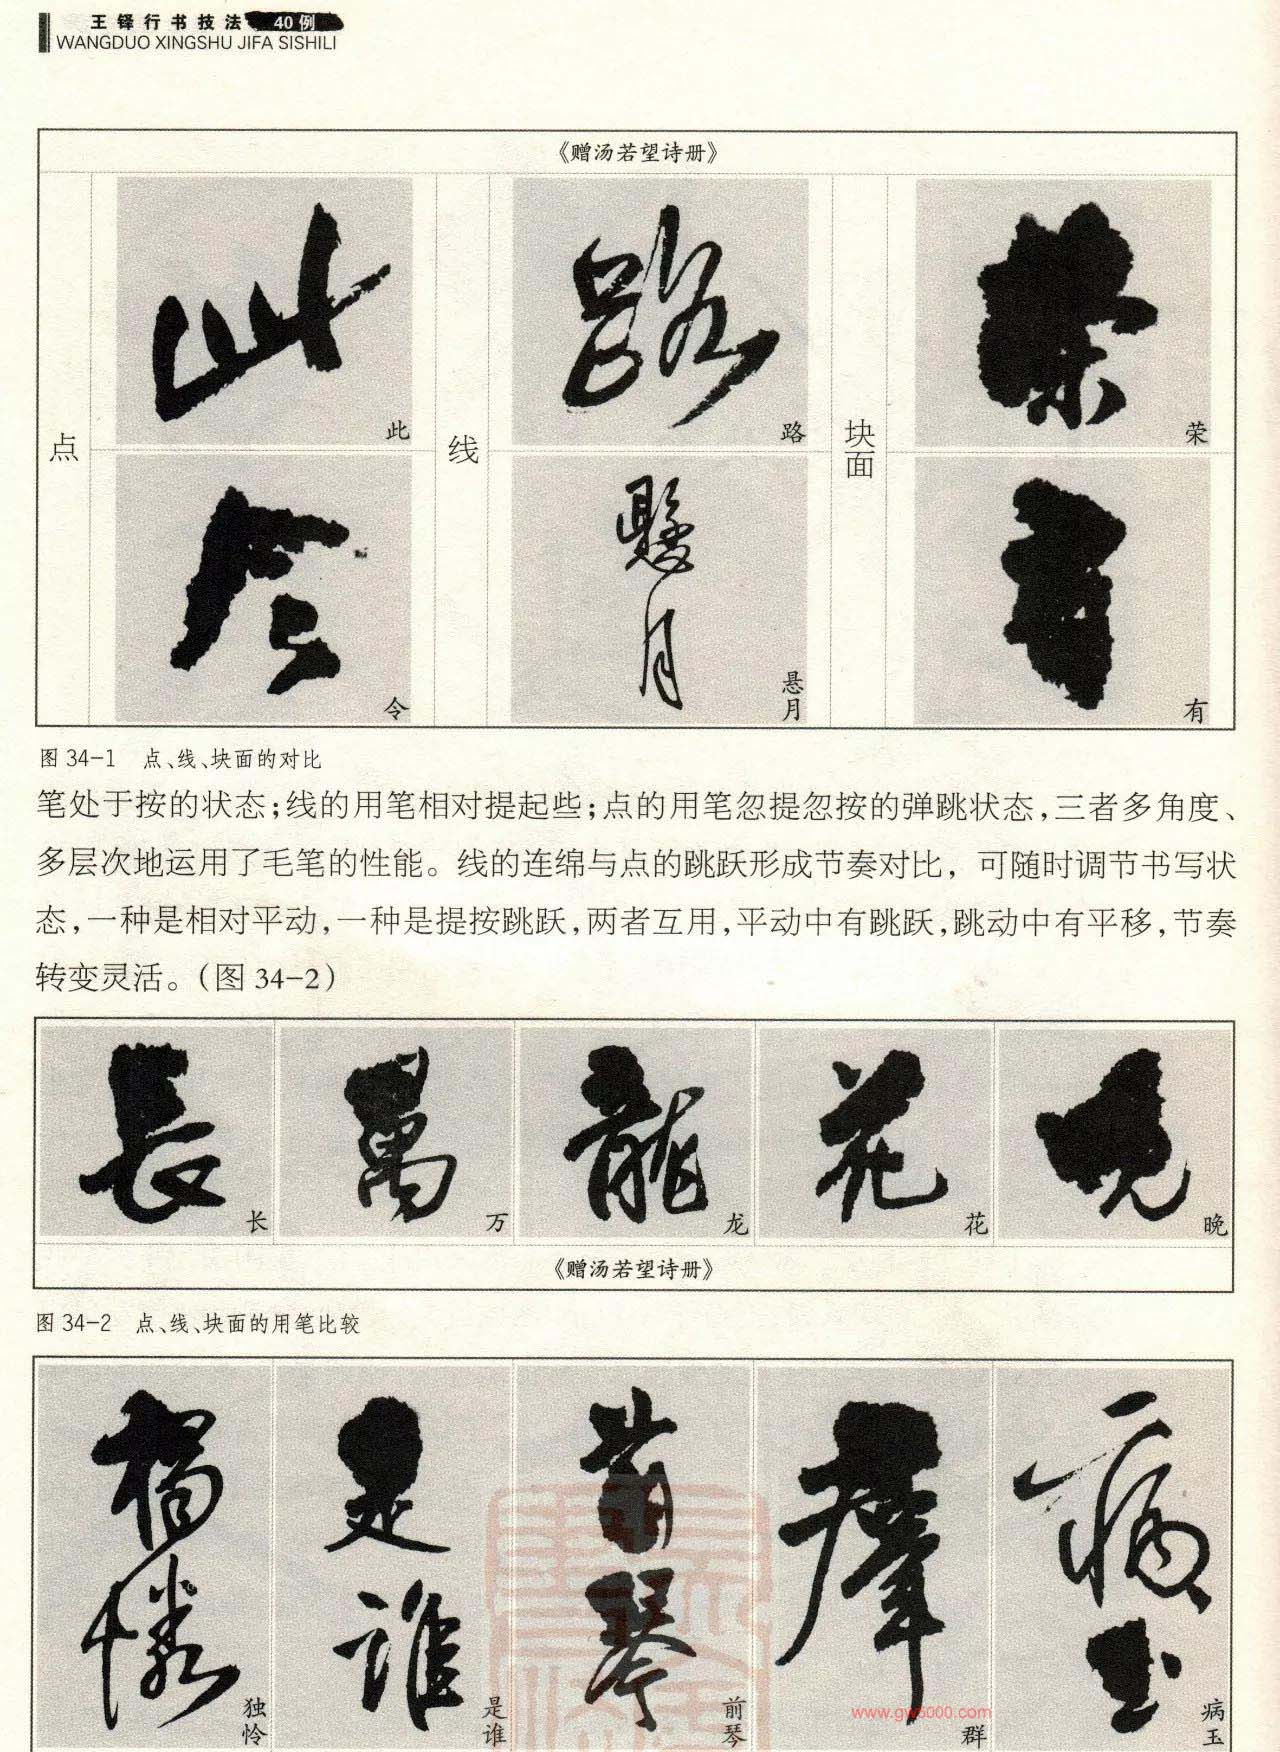 王铎行书技法 40例
WANGDUO XINGSHU JIFA SISHILI
《赠汤若望诗册》
点
此
令
线
路
悬月
块面
荣
有
图 34-1 点、线、块面的对比
笔处于按的状态;线的用笔相对提起些;点的用笔忽提忽按的弹跳状态,三者多角度、
多层次地运用了毛笔的性能。线的连绵与点的跳跃形成节奏对比,可随时调节书写状
态,一种是相对平动,一种是提按跳跃,两者互用,平动中有跳跃,跳动中有平移,节奏
转变灵活。(图 34-2)
长 万 龙 花 晚
《赠汤若望诗册》
图 34-2 点、线、块面的用笔比较
独怜 是谁 前琴 群 病玉
www.gw5000.com